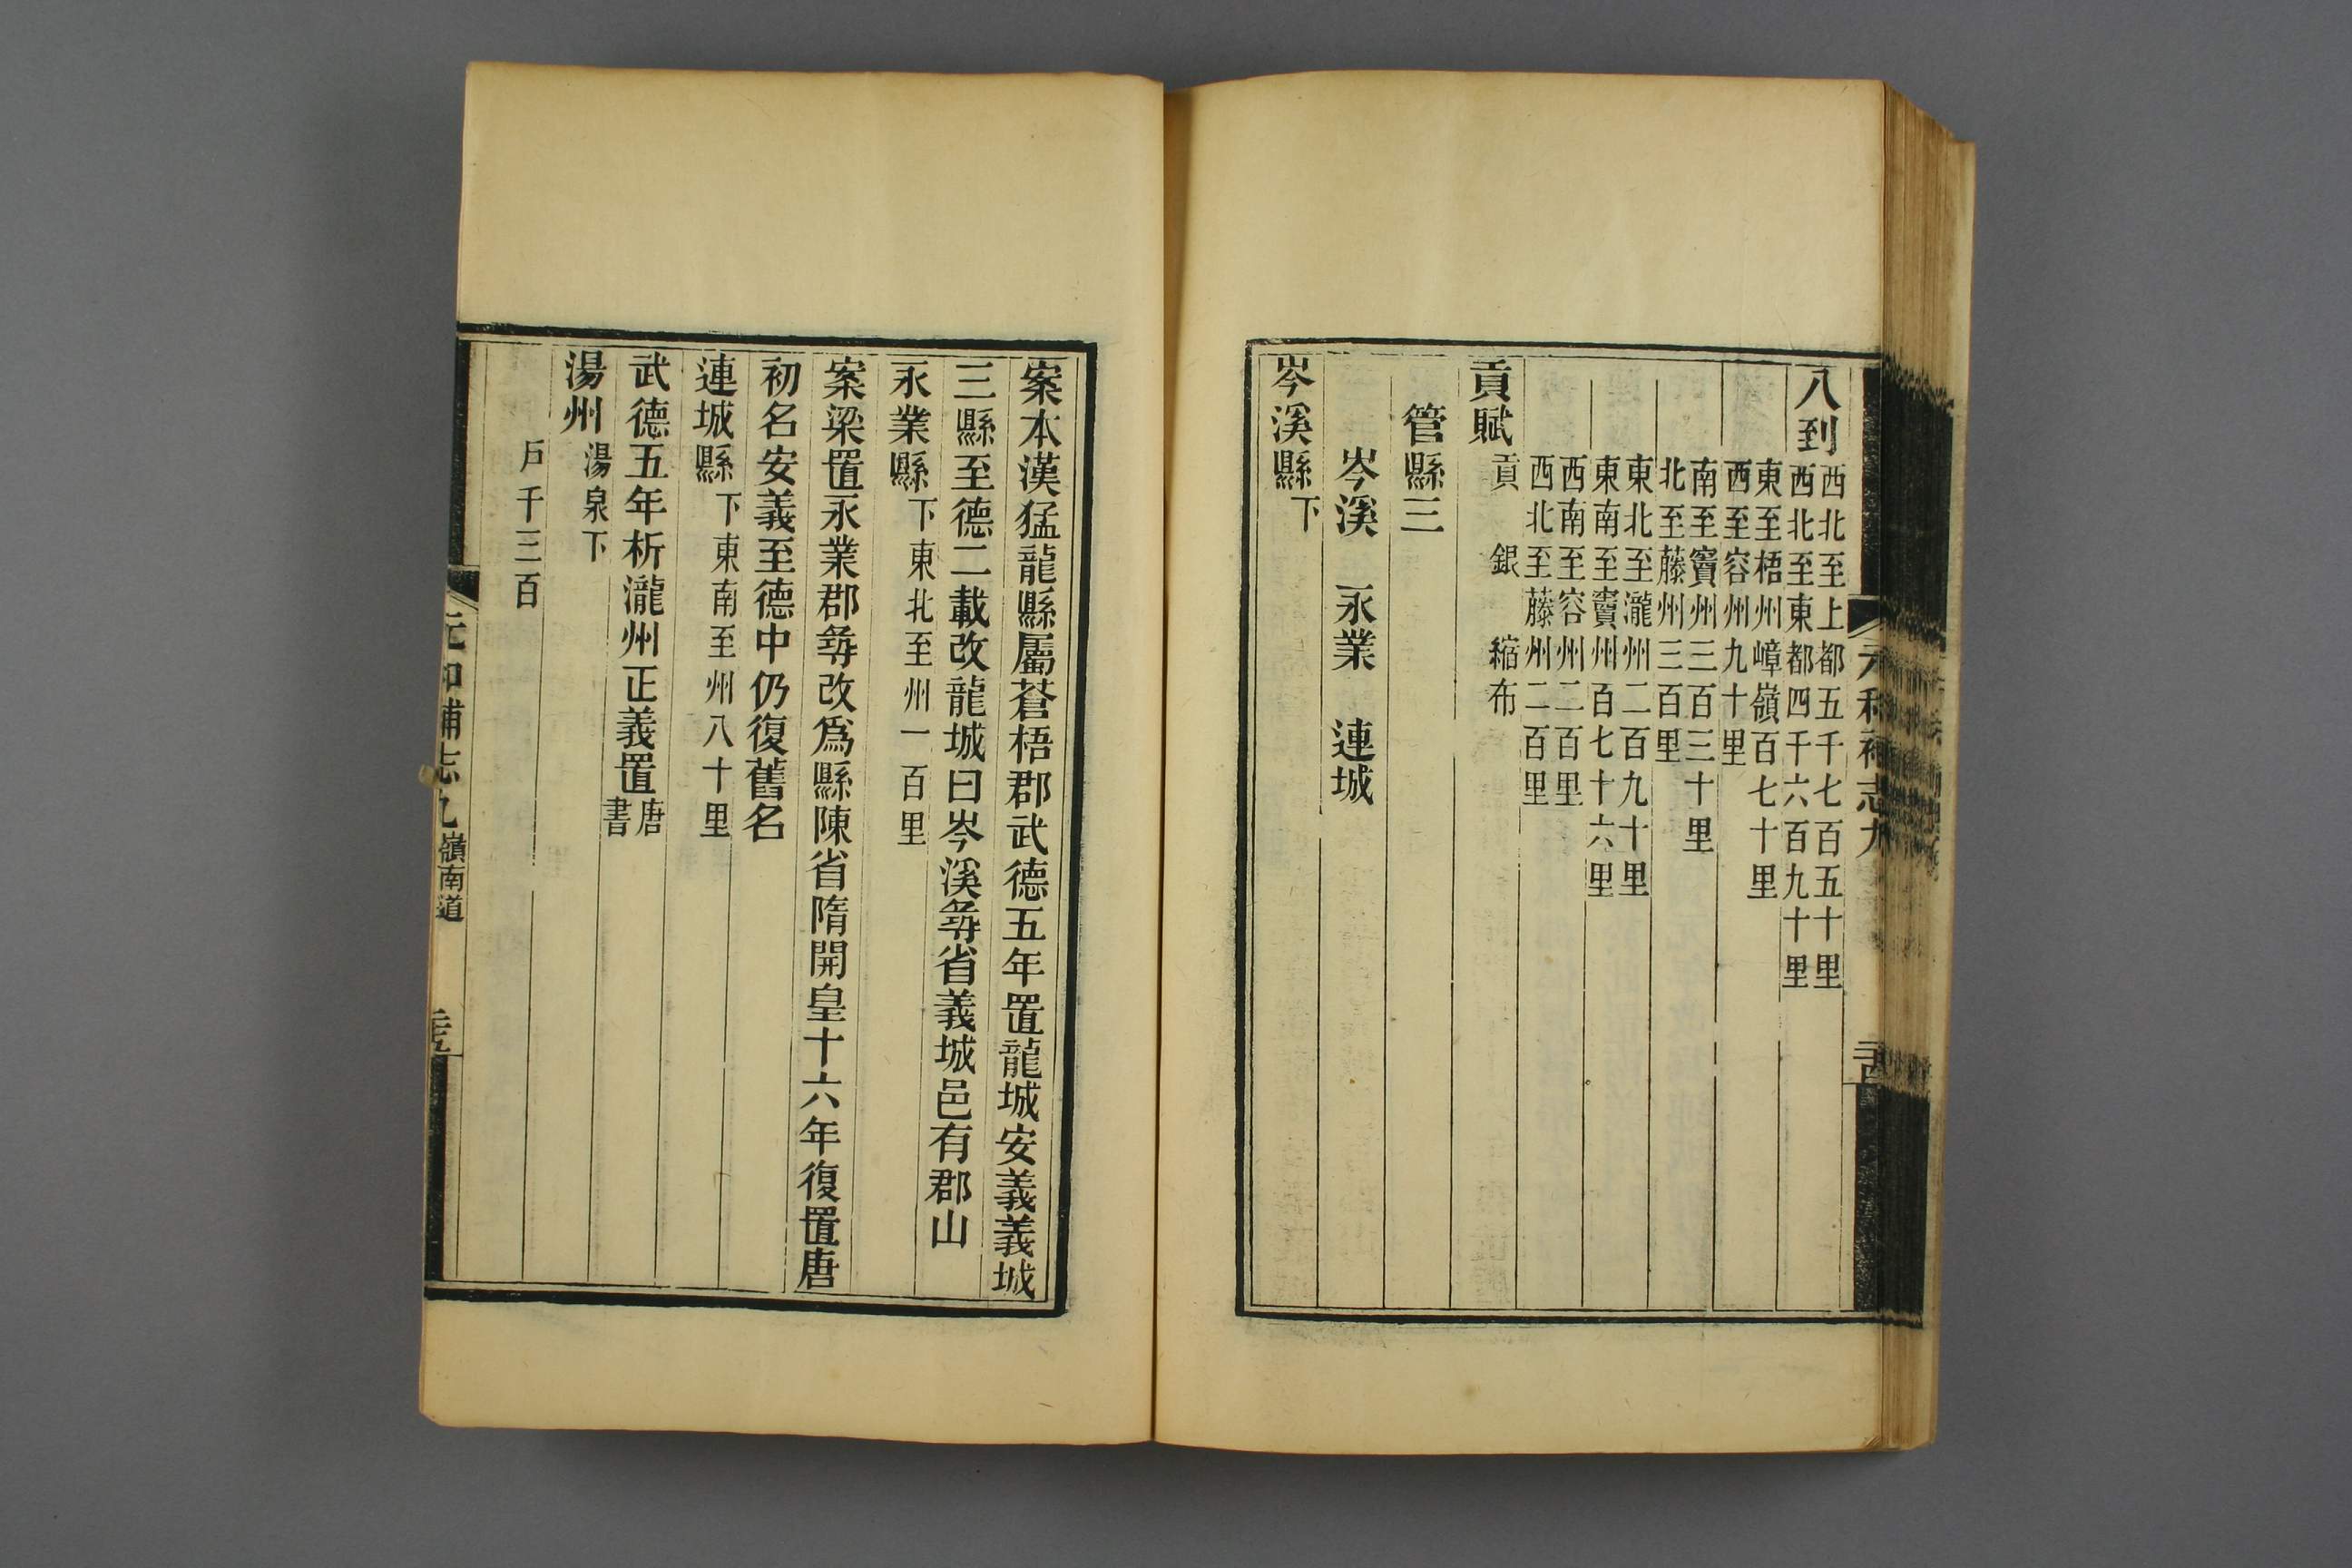 元和補志九
八到
西北至上都五千七百五十里
西北至東都四千六百九十里
東至梧州嶂嶺百七十里
西至容州九十里
南至竇州三百三十里
北至藤州三百里
東北至瀧州二百九十里
東南至竇州百七十六里
西南至容州二百里
西北至藤州二百里
貢賦 貢 銀 縮布
管縣三
岑溪 永業 連城
岑溪縣下
案本漢猛龍縣屬蒼梧郡武德五年置龍城安義義城
三縣至德二載改龍城曰岑溪尋省義城邑有郡山
永業縣下東北至州一百里
案梁置永業郡尋改為縣陳省隋開皇十六年復置唐
初名安義至德中仍復舊名
連城縣下東南至州八十里
武德五年析瀧州正義置唐書
湯州湯泉下
戶千三百
元和補志九 嶺南道